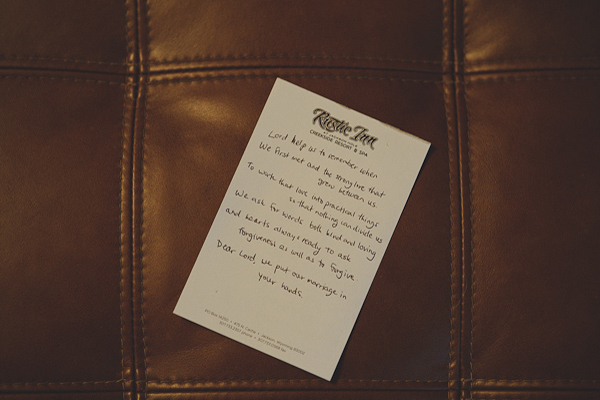 Rustic Inn
CREEKSIDE RESORT & SPA
Lord help us to remember when
We first met and the strong love that
grew between us.
To work that love into practical things
so that nothing can divide us
We ask for words both kind and loving
and hearts always ready to ask
forgiveness as well as to forgive
Dear Lord, we put our marriage in
your hands
Jackson, Wyoming 83002